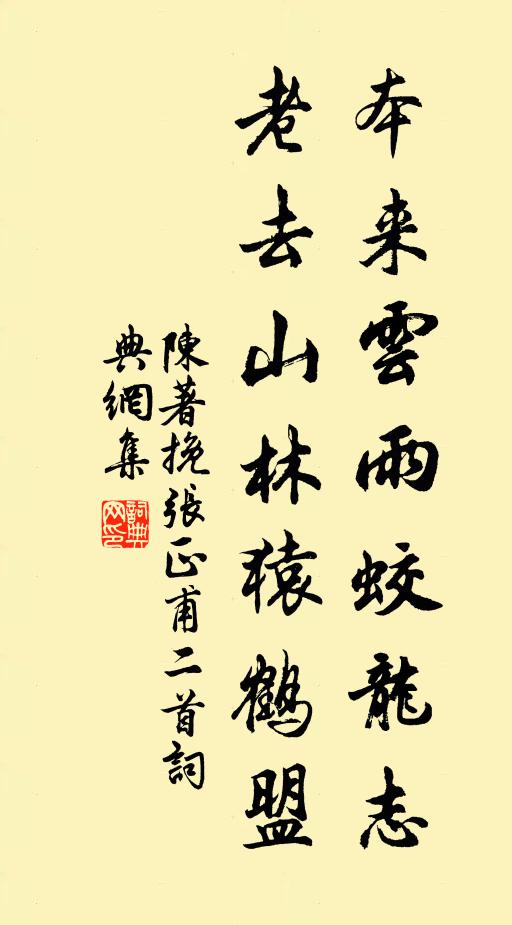 本来雲雨蛟龍志
老去山林猿鶴盟
陳著挽張正甫二首詞
典網集
詞典
网印